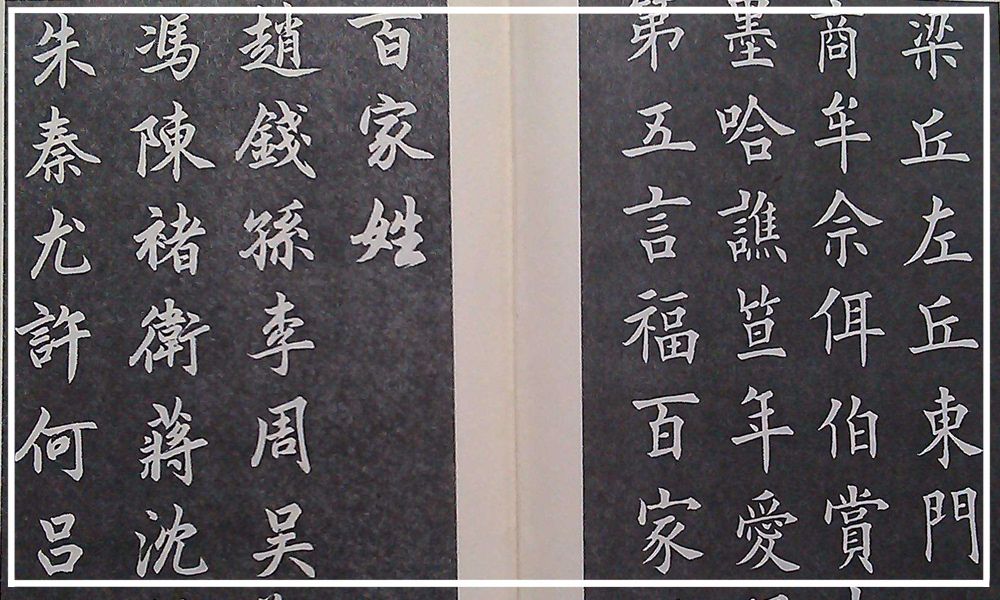 梁丘左丘東門
商牟佘佴伯賞
墨哈譙笪年愛
第五言福百家
百家姓
趙錢孫李周吳
馮陳褚衛蔣沈
朱秦尤許何呂